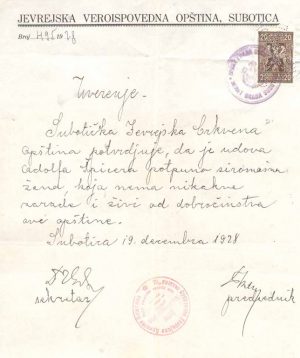 JEVREJSKA VEROISPOVEDNA OPŠTINA, SUBOTICA
Broj 495 1928
Uverenje.
Subotička Jevrejska Crkvena
opština potvrdjuje, da je udova
Adolfa Špicera potpuno siromašna
žena, koja nema nikakve
zarade i živi od dobročinstva
ove opštine.
Subotica 19. decembra 1928
sekretar
predsednik